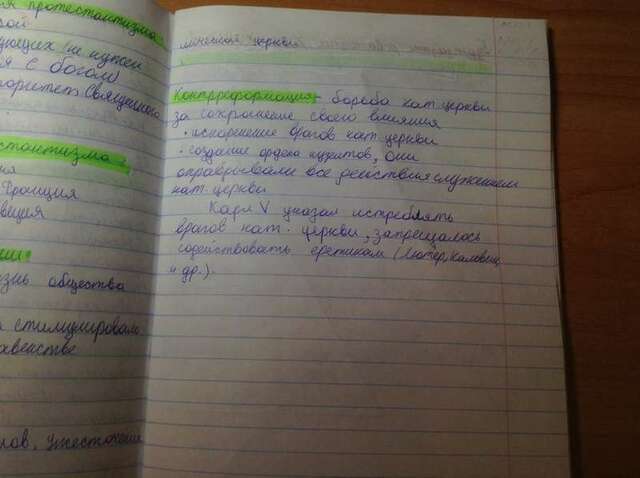 я протестантизма
ой
ующих (не нужен
я с богом)
торитет Священного
стантизма
ия
Франция
веция
ии:
знь общества
а стимулировало
хвенстве
лов, ужесточение
лической церкви
Контрреформация - борьба кат. церкви
за сохранение своего влияния
• искоренение врагов кат. церкви
• создание ордена иезуитов, они
оправдывали все действия служением
кат. церкви
Карл V указал истреблять
врагов кат. церкви, запрещалось
содействовать еретикам (Лютер, Кальвин
и др.).